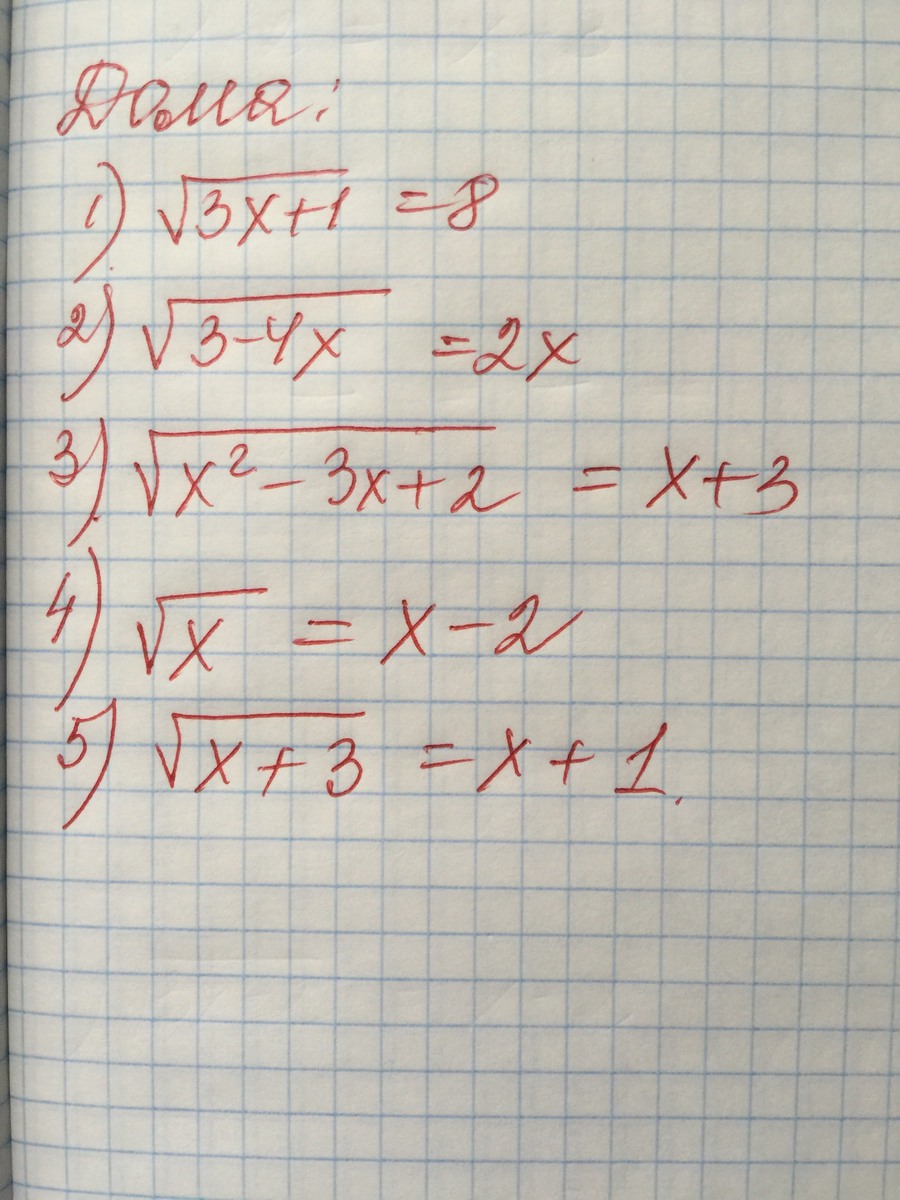 Дома:
1) √3x+1 = 8
2) √3-4x = 2x
3) √x² - 3x+2 = x+3
4) √x = x-2
5) √x+3 = x+1.